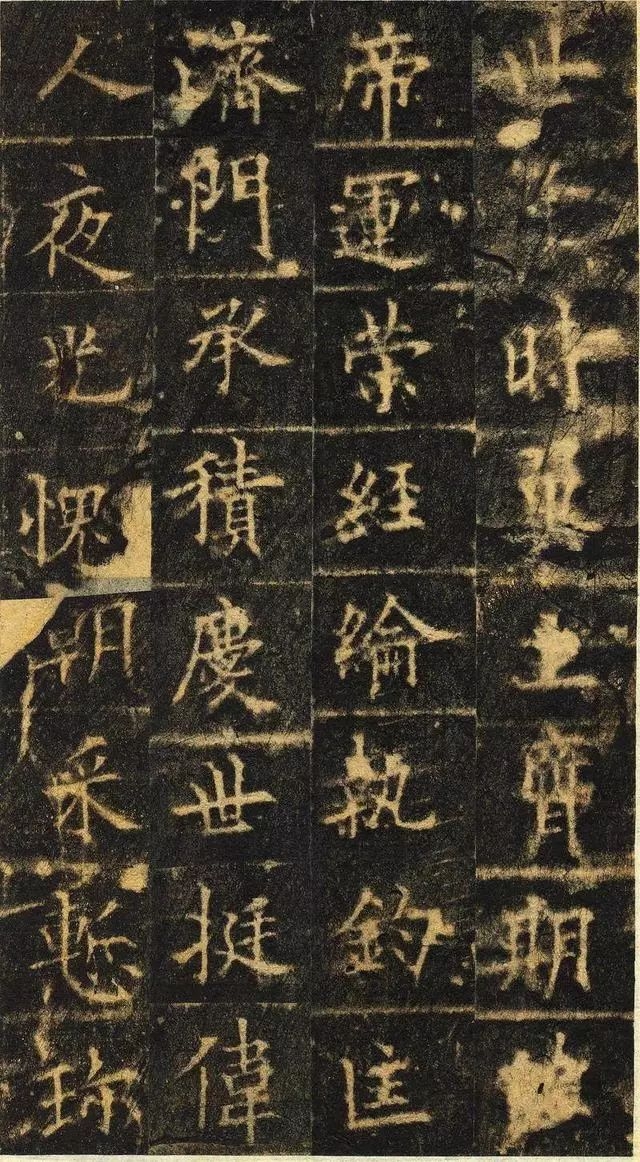 世時土期
帝運榮經綸執鈞匡
濟門承積慶世挺偉
人夜光愧朗采慙珎